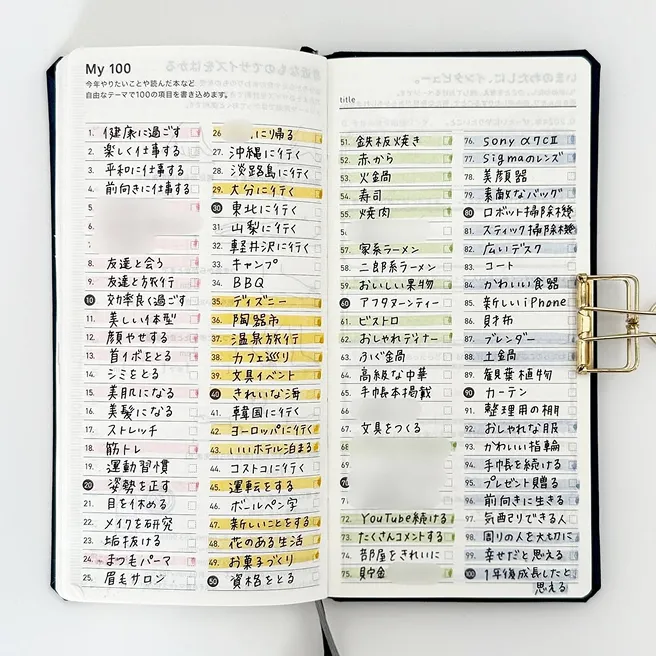 My 100
今年やりたいことや読んだ本など
自由なテーマで100の項目を書き込めます。
1. 健康に過ごす
2. 楽しく仕事する
3. 平和に仕事する
4. 前向きに仕事する
5.
6.
8. 友達と会う
9. 友達と旅行
10 効率良く過ごす
11. 美しい体型
12. 顔やせする
13. 首イボをとる
14. シミをとる
15. 美肌になる
16. 美髪になる
17. ストレッチ
18. 筋トレ
19. 運動習慣
20 姿勢を正す
21. 目を休める
22. メイクを研究
23. 垢抜ける
24. まつ毛パーマ
25. 眉毛サロン
26. に帰る
27. 沖縄に行く
28. 淡路島に行く
29. 大分に行く
30 東北に行く
31. 山梨に行く
32. 軽井沢に行く
33. キャンプ
34. BBQ
35. ディズニー
36. 陶器市
37. 温泉旅行
38. カフェ巡り
39. 文具イベント
40 きれいな海
41. 韓国に行く
42. ヨーロッパに行く
43. いいホテル泊まる
44. コストコに行く
45. 運転をする
46. ボールペン字
47. 新しいことをする
48. 花のある生活
49. お菓子づくり
50 資格をとる
title
51. 鉄板焼き
52. 赤から
53. 火金局
54. 寿司
55. 焼肉
57. 家系ラーメン
58. 二郎系ラーメン
59. おいしい果物
60 アフタヌーンティー
61. ビストロ
62. おしゃれディナー
63. ふぐ金局
64. 高級な中華
65. 手帳本掲載
66.
67. 文具をつくる
68
69.
71.
72. YouTube続ける
73. たくさんコメントする
74. 部屋をきれいに
75. 貯金
76. sony α7CⅡ
77. Sigmaのレンズ
78. 美顔器
79. 素敵なバッグ
80 ロボット掃除機
81. スティック掃除機
82. 広いデスク
83. コート
84. かわいい食器
85. 新しいiPhone
86. 財布
87. ブレンダー
88. 土金局
89. 観葉植物
90 カーテン
91. 整理用の棚
92. おしゃれな服
93. かわいい指輪
94. 手帳を続ける
95. プレゼント贈る
96. 前向きに生きる
97. 気配りできる人
98. 周りの人を大切に
99. 幸せだと思える
100 1年後成長したと
思える